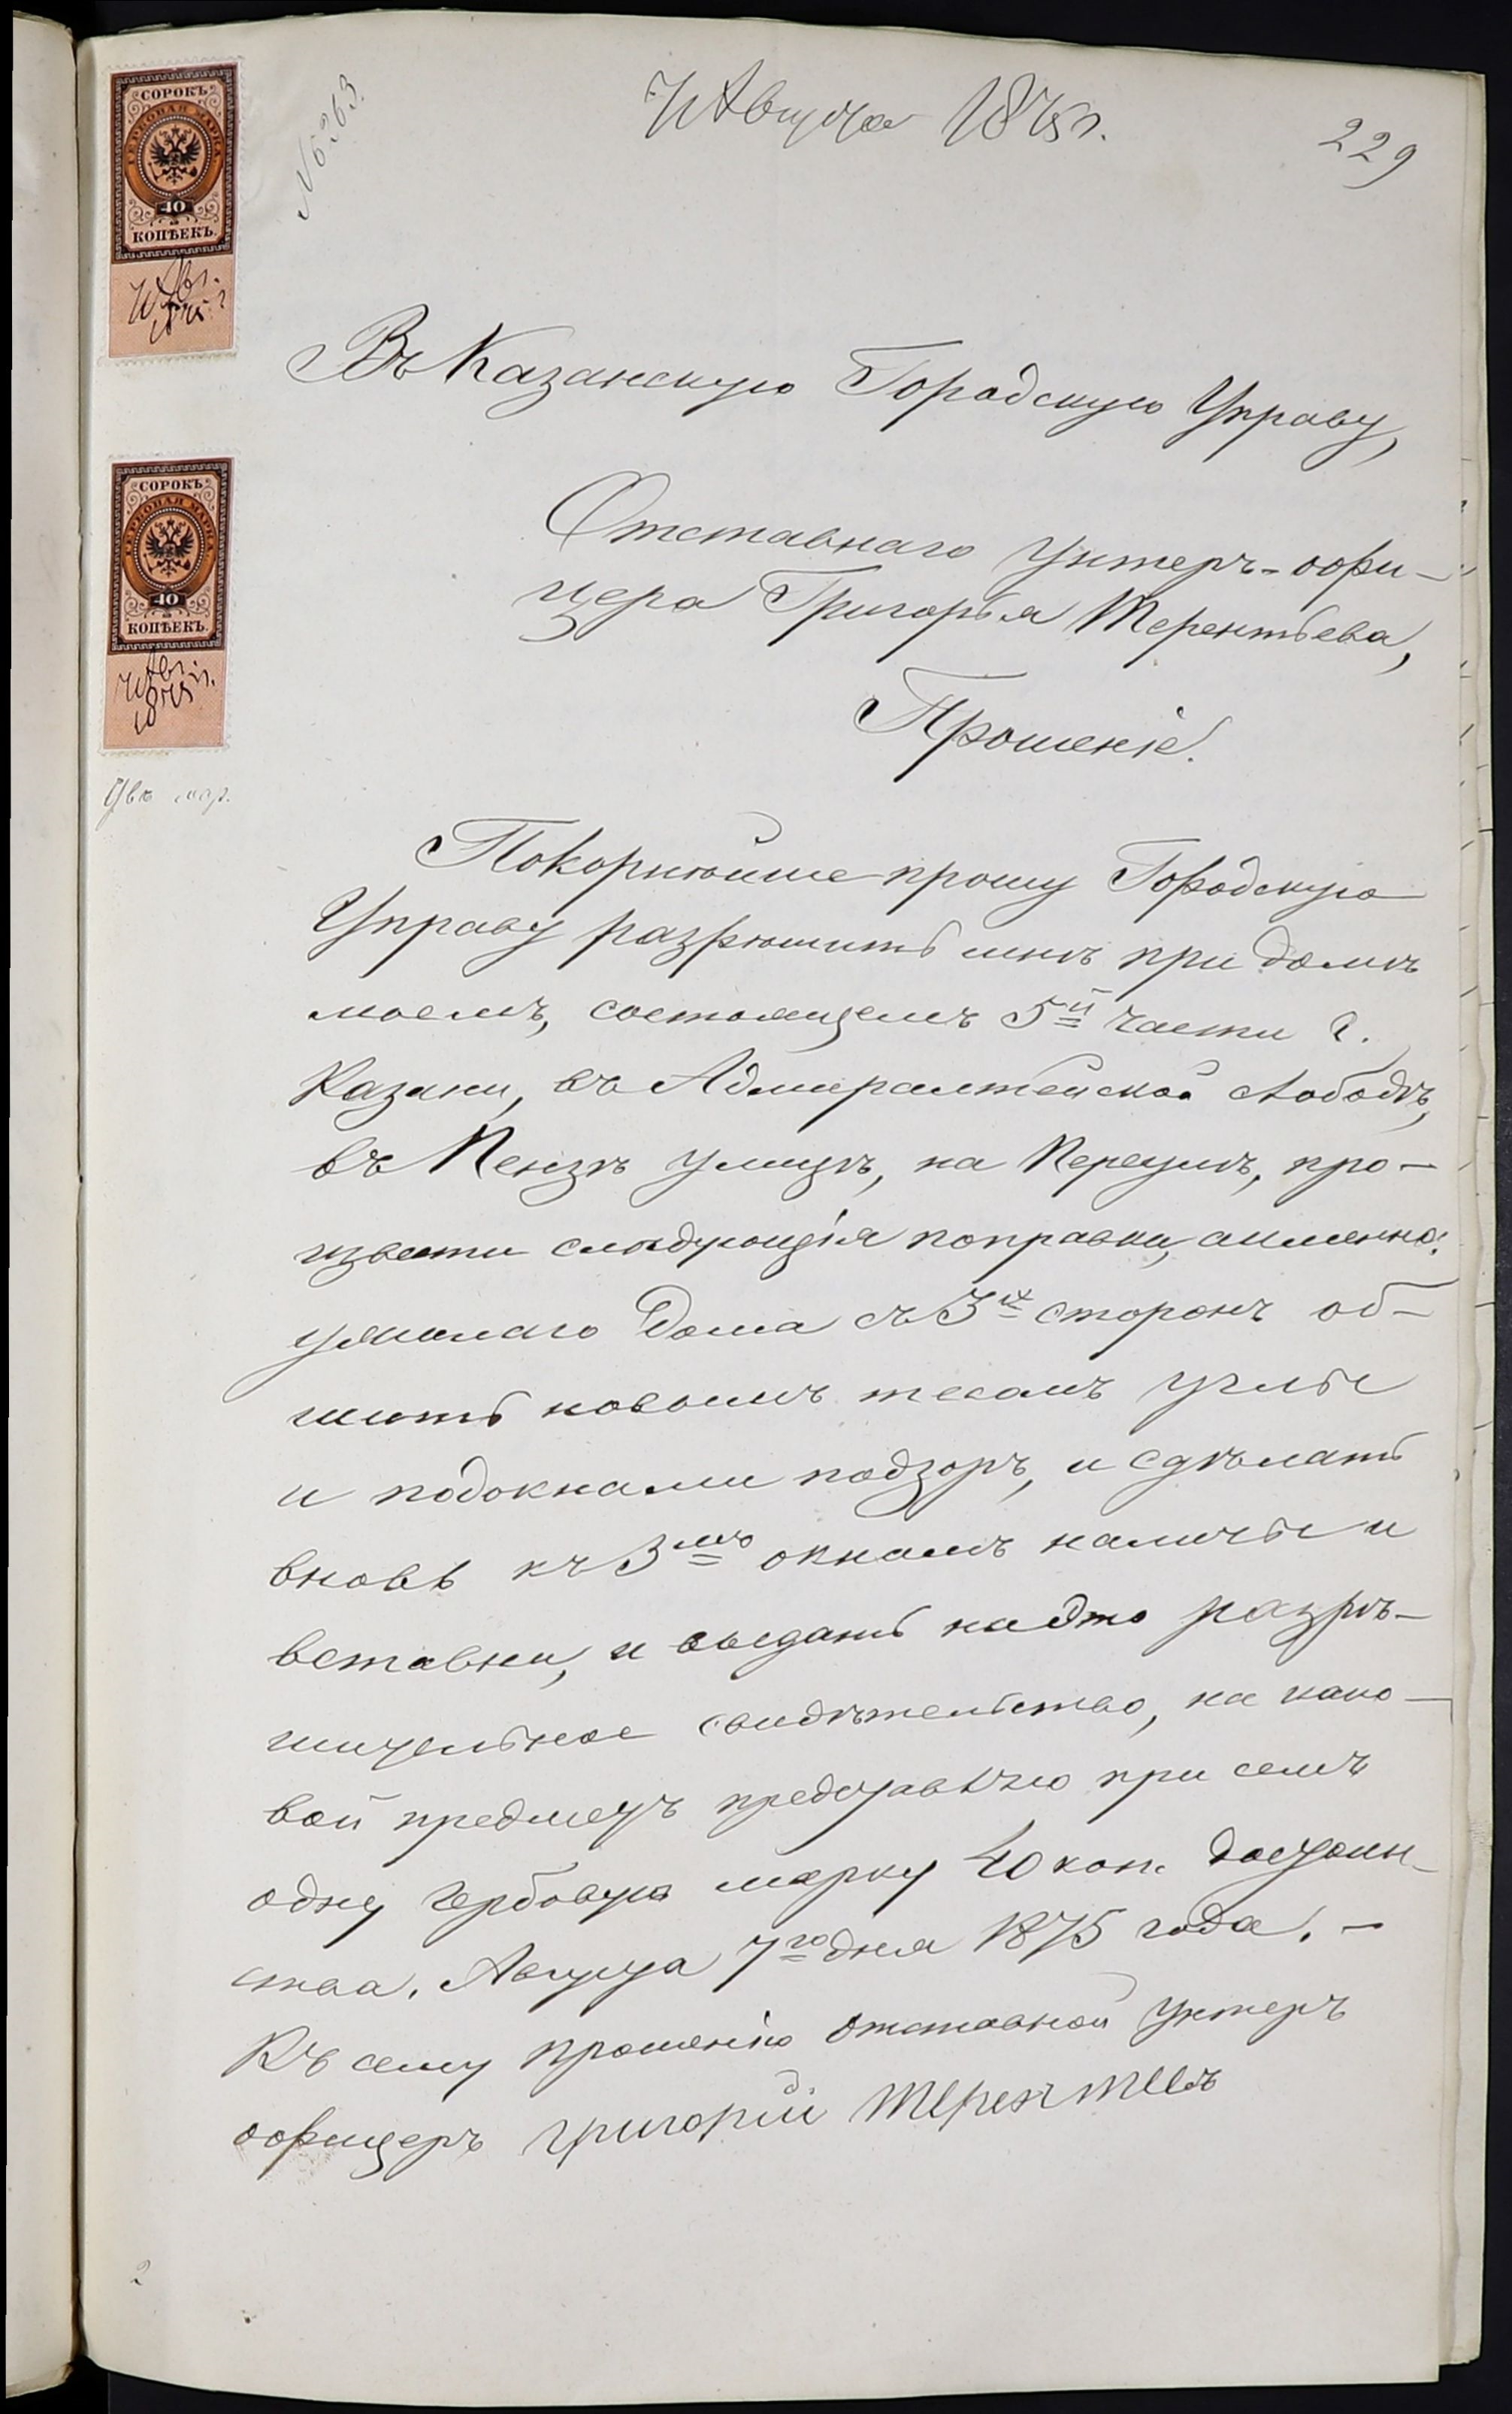 7 Августа 1875 г.
229
№ 6363.
СОРОКЪ
ГЕРБОВАЯ МАРКА
40
КОПѢЕКЪ.
7 Авг.
1875 г.
СОРОКЪ
ГЕРБОВАЯ МАРКА
40
КОПѢЕКЪ.
7 Авг.
1875 г.
Въ Казанскую Городскую Управу,
Отставнаго Унтеръ-офи-
цера Григорья Терентьева,
Прошеніе.
Покорнѣйше прошу Городскую
Управу разрѣшить мнѣ при домѣ
моемъ, состоящемъ 5й части г.
Казани, въ Адмиралтейской слободѣ,
въ Пензѣ улицѣ, на Перемѣ, про-
извести слѣдующія поправки, аименно:
у жилаго дома съ 3х сторонъ об-
шить новымъ тесомъ углы
и подокнами подзоръ, и сдѣлать
вновь къ 3мъ окнамъ наличьи и
вставни, и выдать на это разрѣ-
шительное свидѣтельство, на како-
вой предметъ представляю при семъ
одну гербовую марку 40 коп. достоин-
ства. Августа 7го дня 1875 года. -
Къ сему прошенію отставной унтеръ
офицеръ григорій